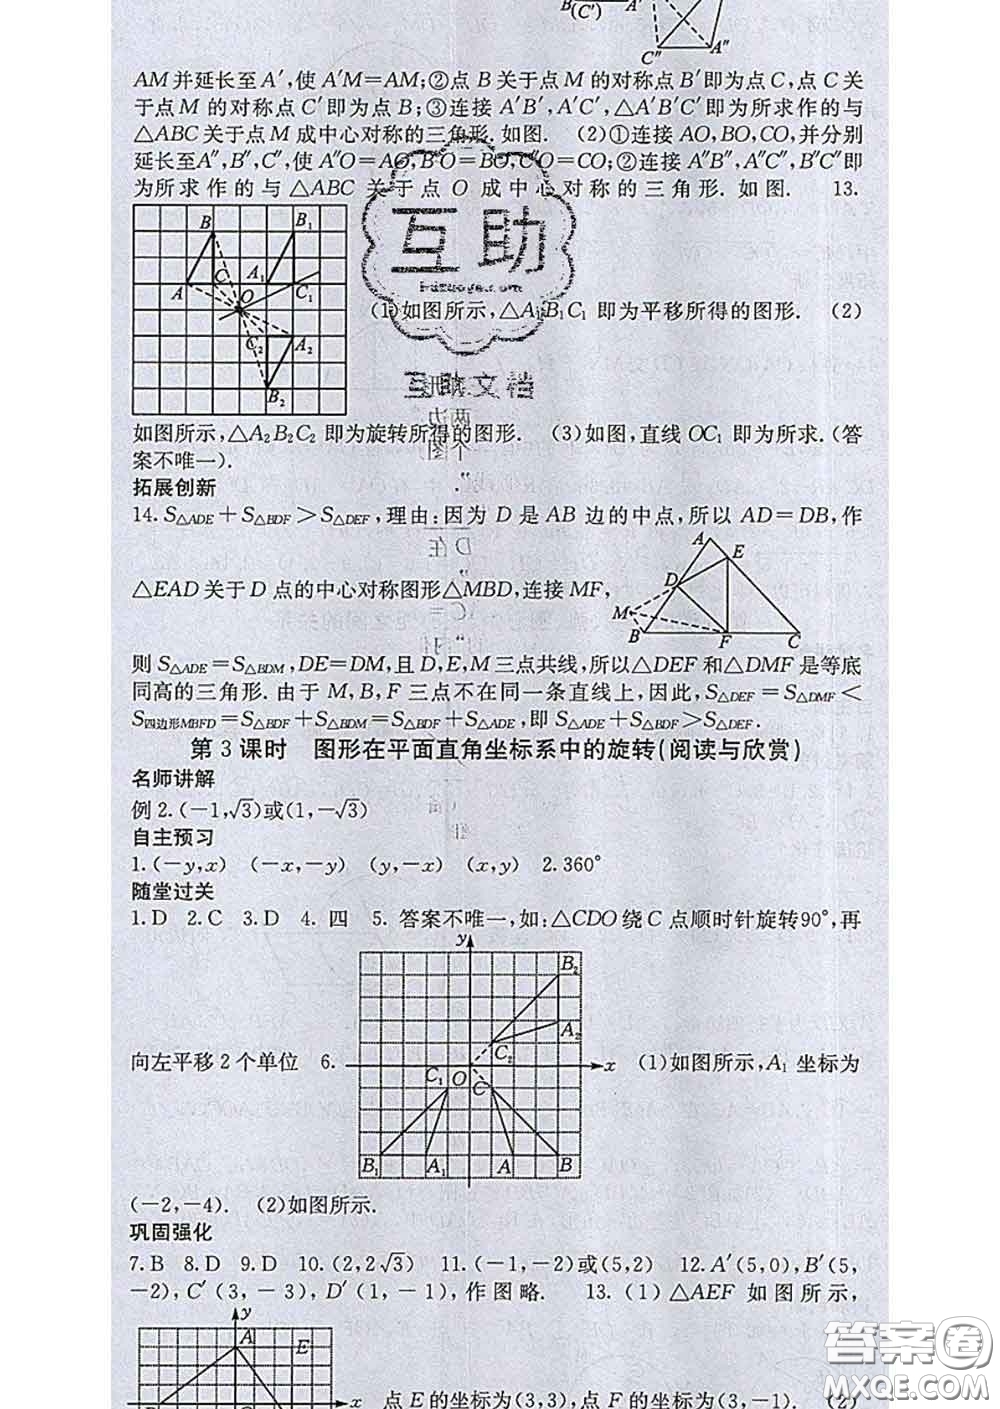 B A′
(C′)
C″ A″
AM并延长至A′,使A′M=AM;②点B关于点M的对称点B′即为点C,点C关
于点M的对称点C′即为点B;③连接A′B′,A′C′,△A′B′C′即为所求作的与
△ABC关于点M成中心对称的三角形.如图. (2)①连接AO,BO,CO,并分别
延长至A″,B″,C″,使A″O=AO,B″O=BO,C″O=CO;②连接A″B″,A″C″,B″C″即
为所求作的与△ABC关于点O成中心对称的三角形.如图. 13.
B B₁
A C O A₁ C₁
C₂ A₂
B₂
互助
(1)如图所示,△A₁B₁C₁即为平移所得的图形. (2)
如图所示,△A₂B₂C₂即为旋转所得的图形. (3)如图,直线OC₁即为所求.(答
案不唯一).
拓展创新
14.S△ADE+S△BDF>S△DEF,理由:因为D是AB边的中点,所以AD=DB,作
△EAD关于D点的中心对称图形△MBD,连接MF,
A E D M B F C
则S△ADE=S△BDM,DE=DM,且D,E,M三点共线,所以△DEF和△DMF是等底
同高的三角形.由于M,B,F三点不在同一条直线上,因此,S△DEF=S△DMF<
S四边形MBFD=S△BDF+S△BDM=S△BDF+S△ADE,即S△ADE+S△BDF>S△DEF.
第3课时 图形在平面直角坐标系中的旋转(阅读与欣赏)
名师讲解
例2.(-1,√3)或(1,-√3)
自主预习
1.(-y,x) (-x,-y) (y,-x) (x,y) 2.360°
随堂过关
1.D 2.C 3.D 4.四 5.答案不唯一,如:△CDO绕C点顺时针旋转90°,再
y
B₂
A₂
C₂
向左平移2个单位 6.
x
(1)如图所示,A₁坐标为
C₁ O C
B₁ A₁ A B
(-2,-4). (2)如图所示.
巩固强化
7.B 8.D 9.D 10.(2,2√3) 11.(-1,-2)或(5,2) 12.A′(5,0),B′(5,
-2),C′(3,-3),D′(1,-1),作图略. 13.(1)△AEF如图所示,
y
A E
x
点E的坐标为(3,3),点F的坐标为(3,-1). (2)
答案圈
MXQE.COM